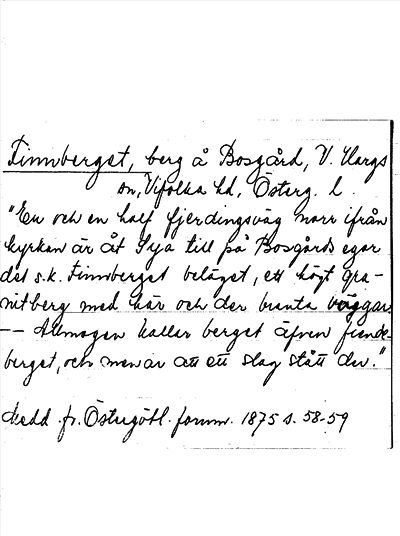 Finnberget, berg å Bosgård, V. Hargs
sn, Vifolka hd, Österg. l.
"En och en half fjerdingsväg norr ifrån
kyrkan är åt Sya till på Bosgårds egor
det s.k. Finnberget beläget, ett högt gra-
nitberg med här och der branta väggar
-- Allmogen kallar berget äfven fiende-
berget, och menar att ett slag stått der."
Medd. fr. Östergötl. fornm. 1875 s. 58-59